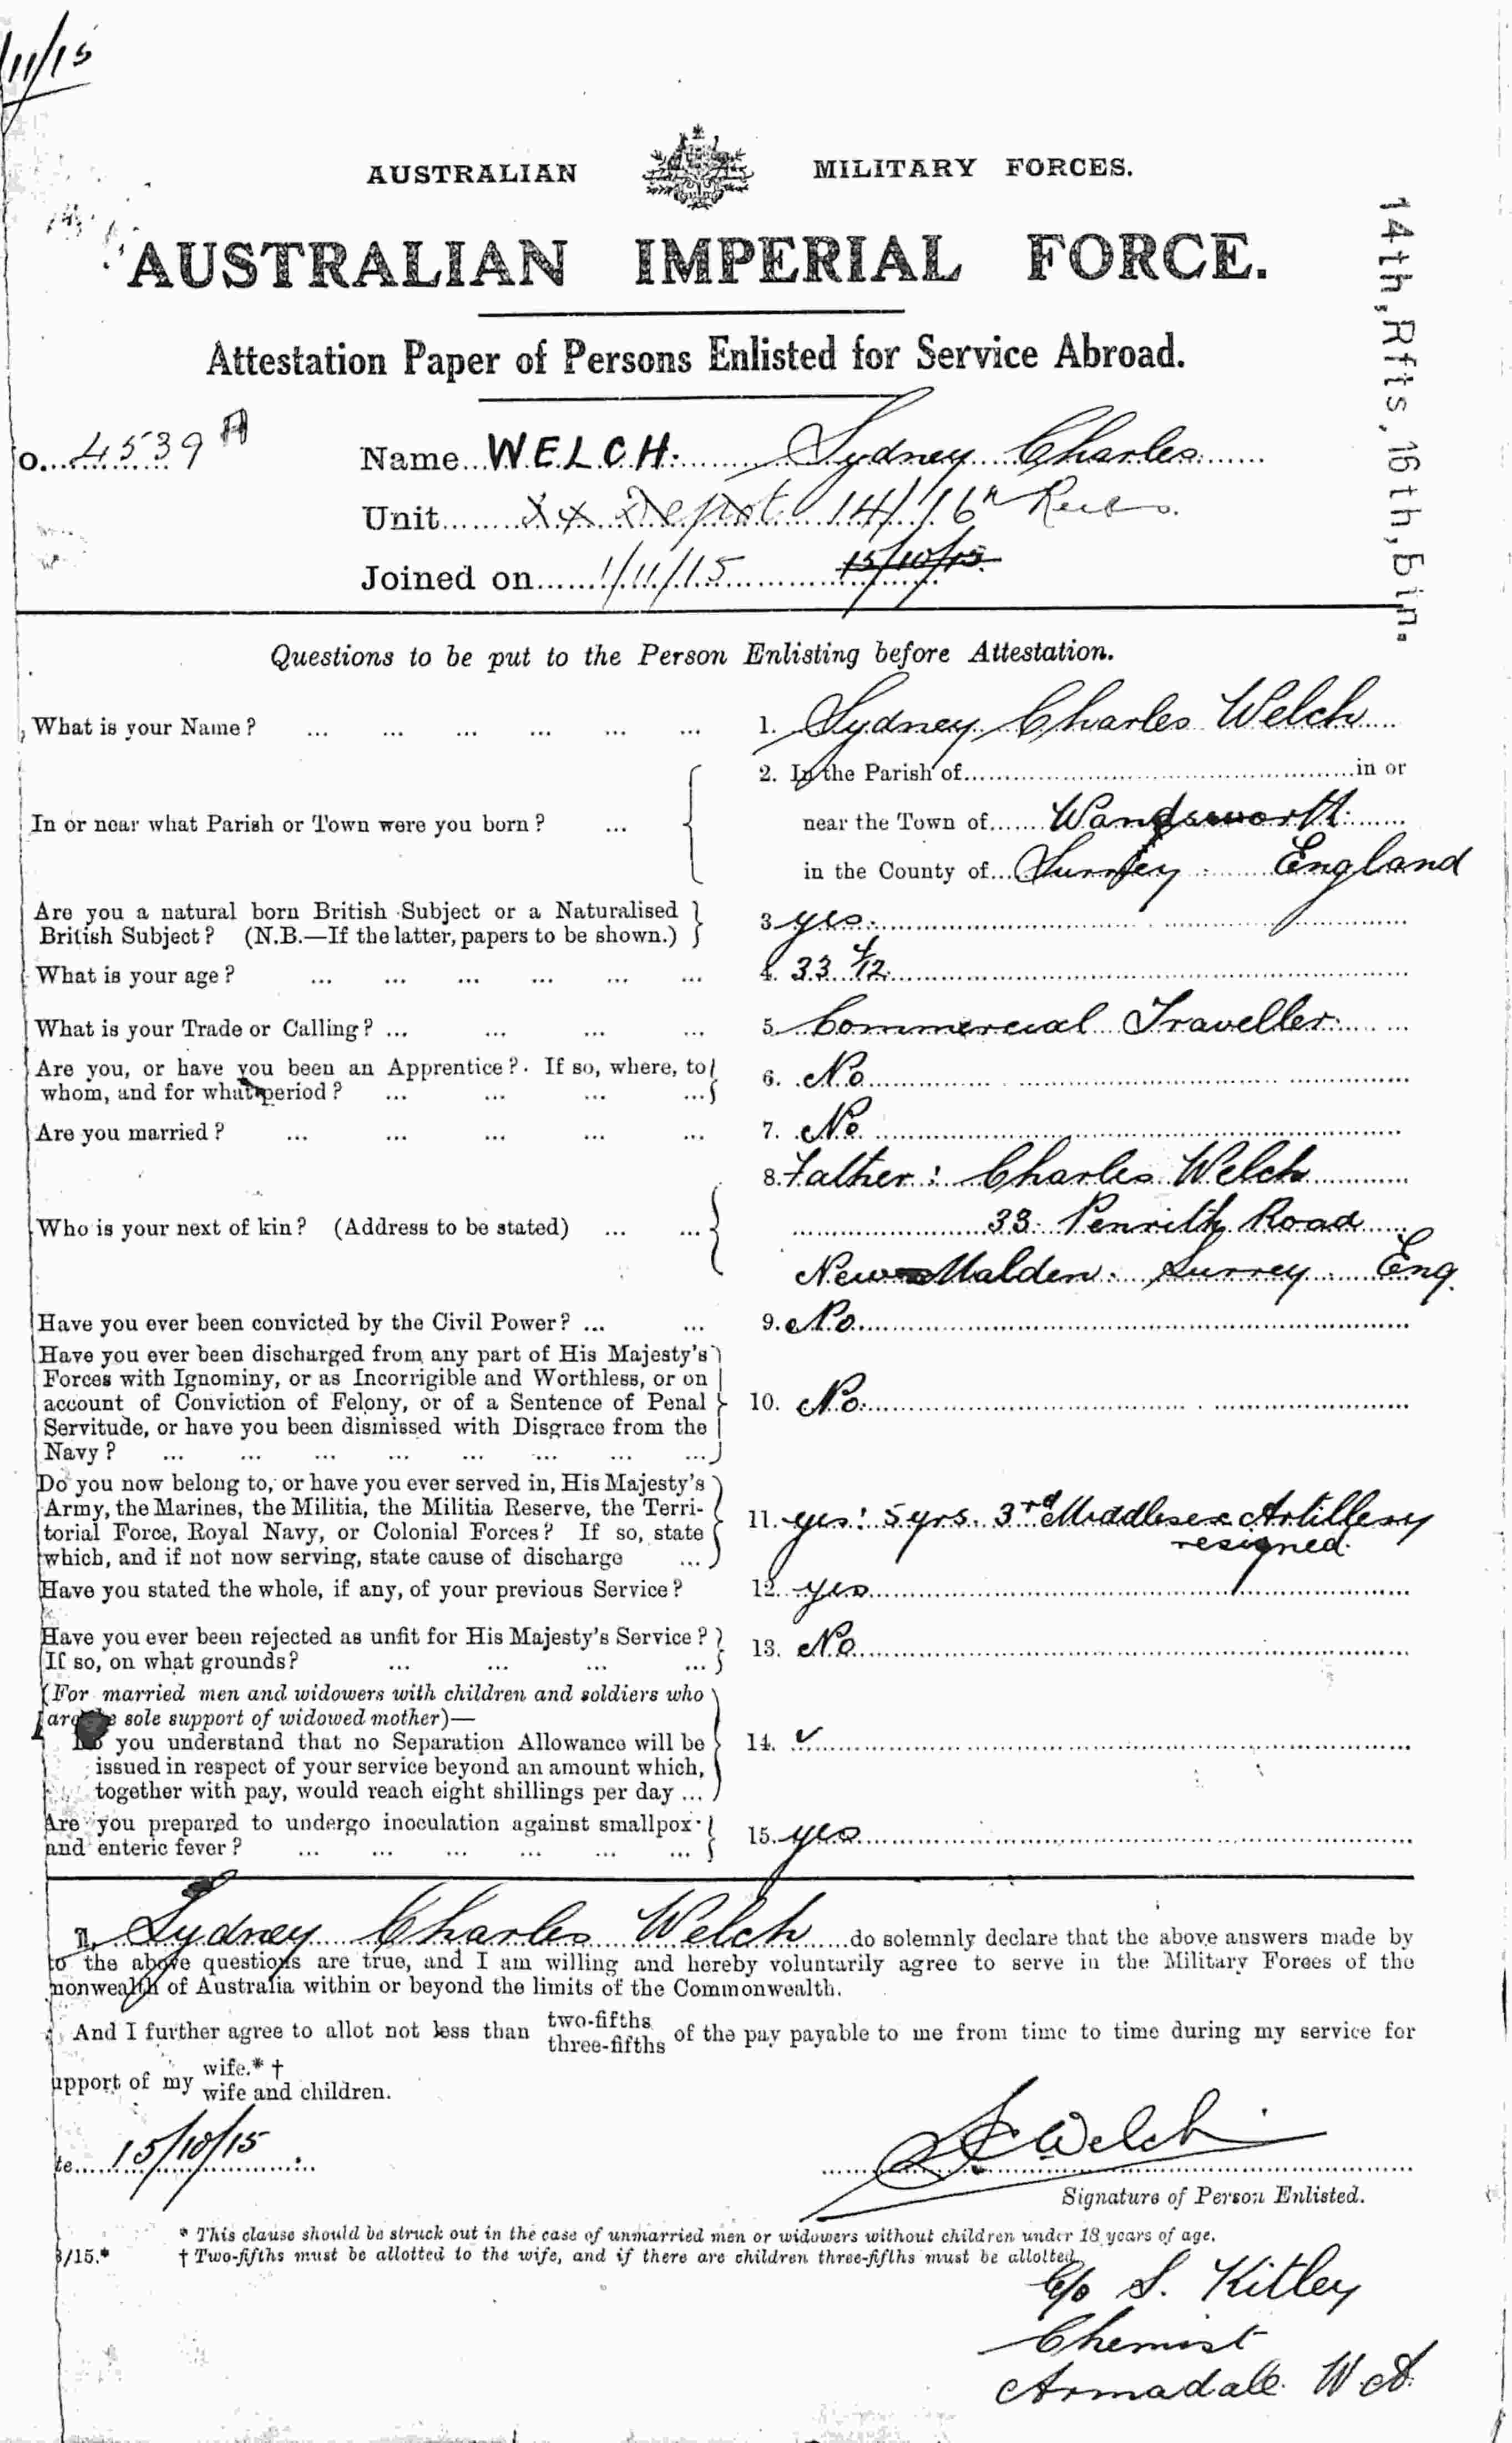 /11/15
AUSTRALIAN MILITARY FORCES.
AUSTRALIAN IMPERIAL FORCE.
14th, Rfts, 16th, Btn.
Attestation Paper of Persons Enlisted for Service Abroad.
o. 4539 A
Name WELCH. Sydney Charles
Unit Depot 14/16th
Joined on 1/11/15 15/10/15
Questions to be put to the Person Enlisting before Attestation.
What is your Name? ... ... ... ... ... ... 1. Sydney Charles Welch
2. In the Parish of in or
In or near what Parish or Town were you born? ... near the Town of Wandsworth
in the County of Surrey England
Are you a natural born British Subject or a Naturalised
British Subject? (N.B.—If the latter, papers to be shown.) 3 yes.
What is your age? ... ... ... ... ... ... 4. 33 4/12
What is your Trade or Calling? ... ... ... ... 5. Commercial Traveller.
Are you, or have you been an Apprentice? If so, where, to
whom, and for what period? ... ... ... ... 6. No
Are you married? ... ... ... ... ... 7. No
8. Father: Charles Welch
Who is your next of kin? (Address to be stated) ... ... 33 Penrith Road
New Malden. Surrey. Eng.
Have you ever been convicted by the Civil Power? ... ... 9. No
Have you ever been discharged from any part of His Majesty's
Forces with Ignominy, or as Incorrigible and Worthless, or on
account of Conviction of Felony, or of a Sentence of Penal 10. No.
Servitude, or have you been dismissed with Disgrace from the
Navy? ... ... ... ... ... ... ... ...
Do you now belong to, or have you ever served in, His Majesty's
Army, the Marines, the Militia, the Militia Reserve, the Terri-
torial Force, Royal Navy, or Colonial Forces? If so, state 11. yes: 5 yrs. 3rd Middlesex Artillery
which, and if not now serving, state cause of discharge ... resigned.
Have you stated the whole, if any, of your previous Service? 12. yes
Have you ever been rejected as unfit for His Majesty's Service?
If so, on what grounds? ... ... ... ... 13. No
(For married men and widowers with children and soldiers who
are sole support of widowed mother)—
you understand that no Separation Allowance will be 14.
issued in respect of your service beyond an amount which,
together with pay, would reach eight shillings per day ...
Are you prepared to undergo inoculation against smallpox
and enteric fever? ... ... ... ... ... ... 15. yes
I, Sydney Charles Welch do solemnly declare that the above answers made by
to the above questions are true, and I am willing and hereby voluntarily agree to serve in the Military Forces of the
monwealth of Australia within or beyond the limits of the Commonwealth.
And I further agree to allot not less than two-fifths three-fifths of the pay payable to me from time to time during my service for
upport of my wife.* † wife and children.
te 15/10/15. S C Welch
Signature of Person Enlisted.
* This clause should be struck out in the case of unmarried men or widowers without children under 18 years of age.
/15.* † Two-fifths must be allotted to the wife, and if there are children three-fifths must be allotted.
C/o S. Kitley
Chemist
Armadale. W.A.